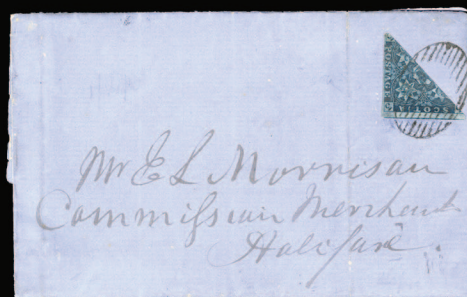 SCOTIA
Mr E L Morrison
Commission Merchant
Halifax